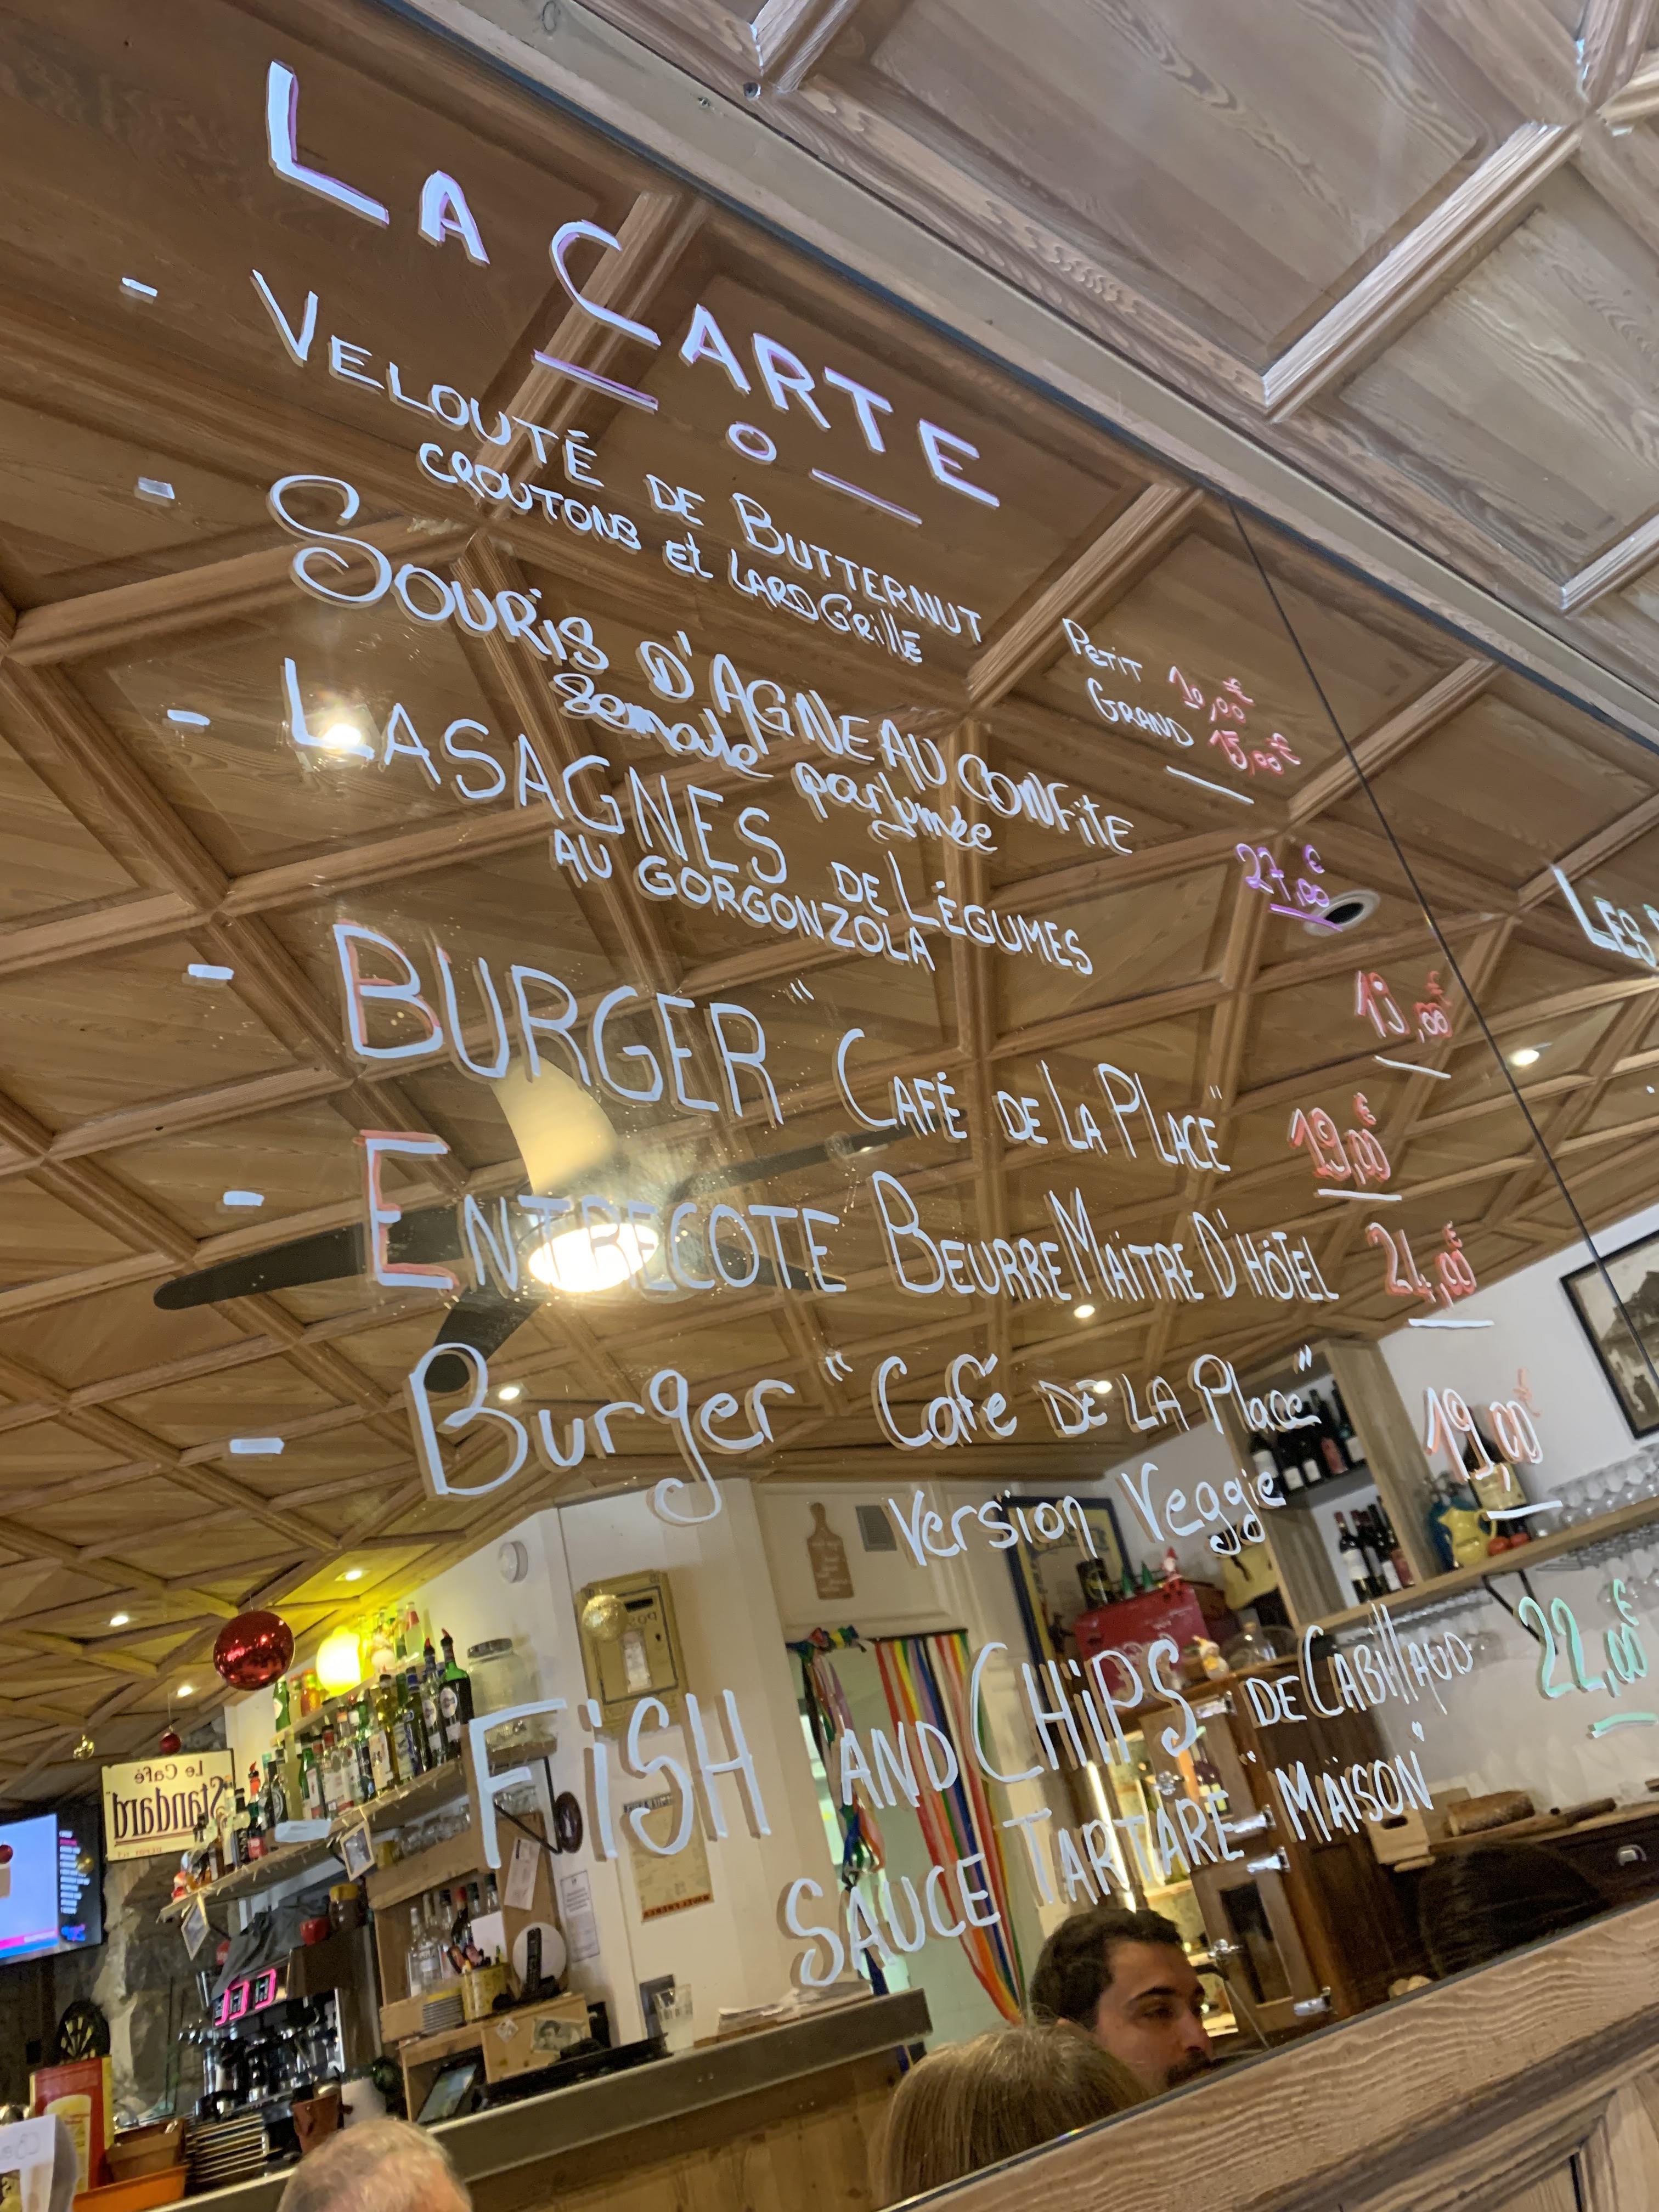 LA CARTE
- VELOUTÉ DE BUTTERNUT
CROUTONS et LARD GRILLÉ
PETIT 10,00€
GRAND 15,00€
- SOURIS D'AGNEAU CONFITE
Semoule parfumée
27,00€
- LASAGNES DE LÉGUMES
AU GORGONZOLA
19,00€
- BURGER "CAFÉ DE LA PLACE" 19,00€
- ENTRECOTE BEURRE MAITRE D'HÔTEL 24,00€
- Burger "Café DE LA Place" 19,00€
Version Veggie
- FISH AND CHIPS DE CABILLAUD 22,00€
SAUCE TARTARE "MAISON"
LES
Le Café
"Standard"